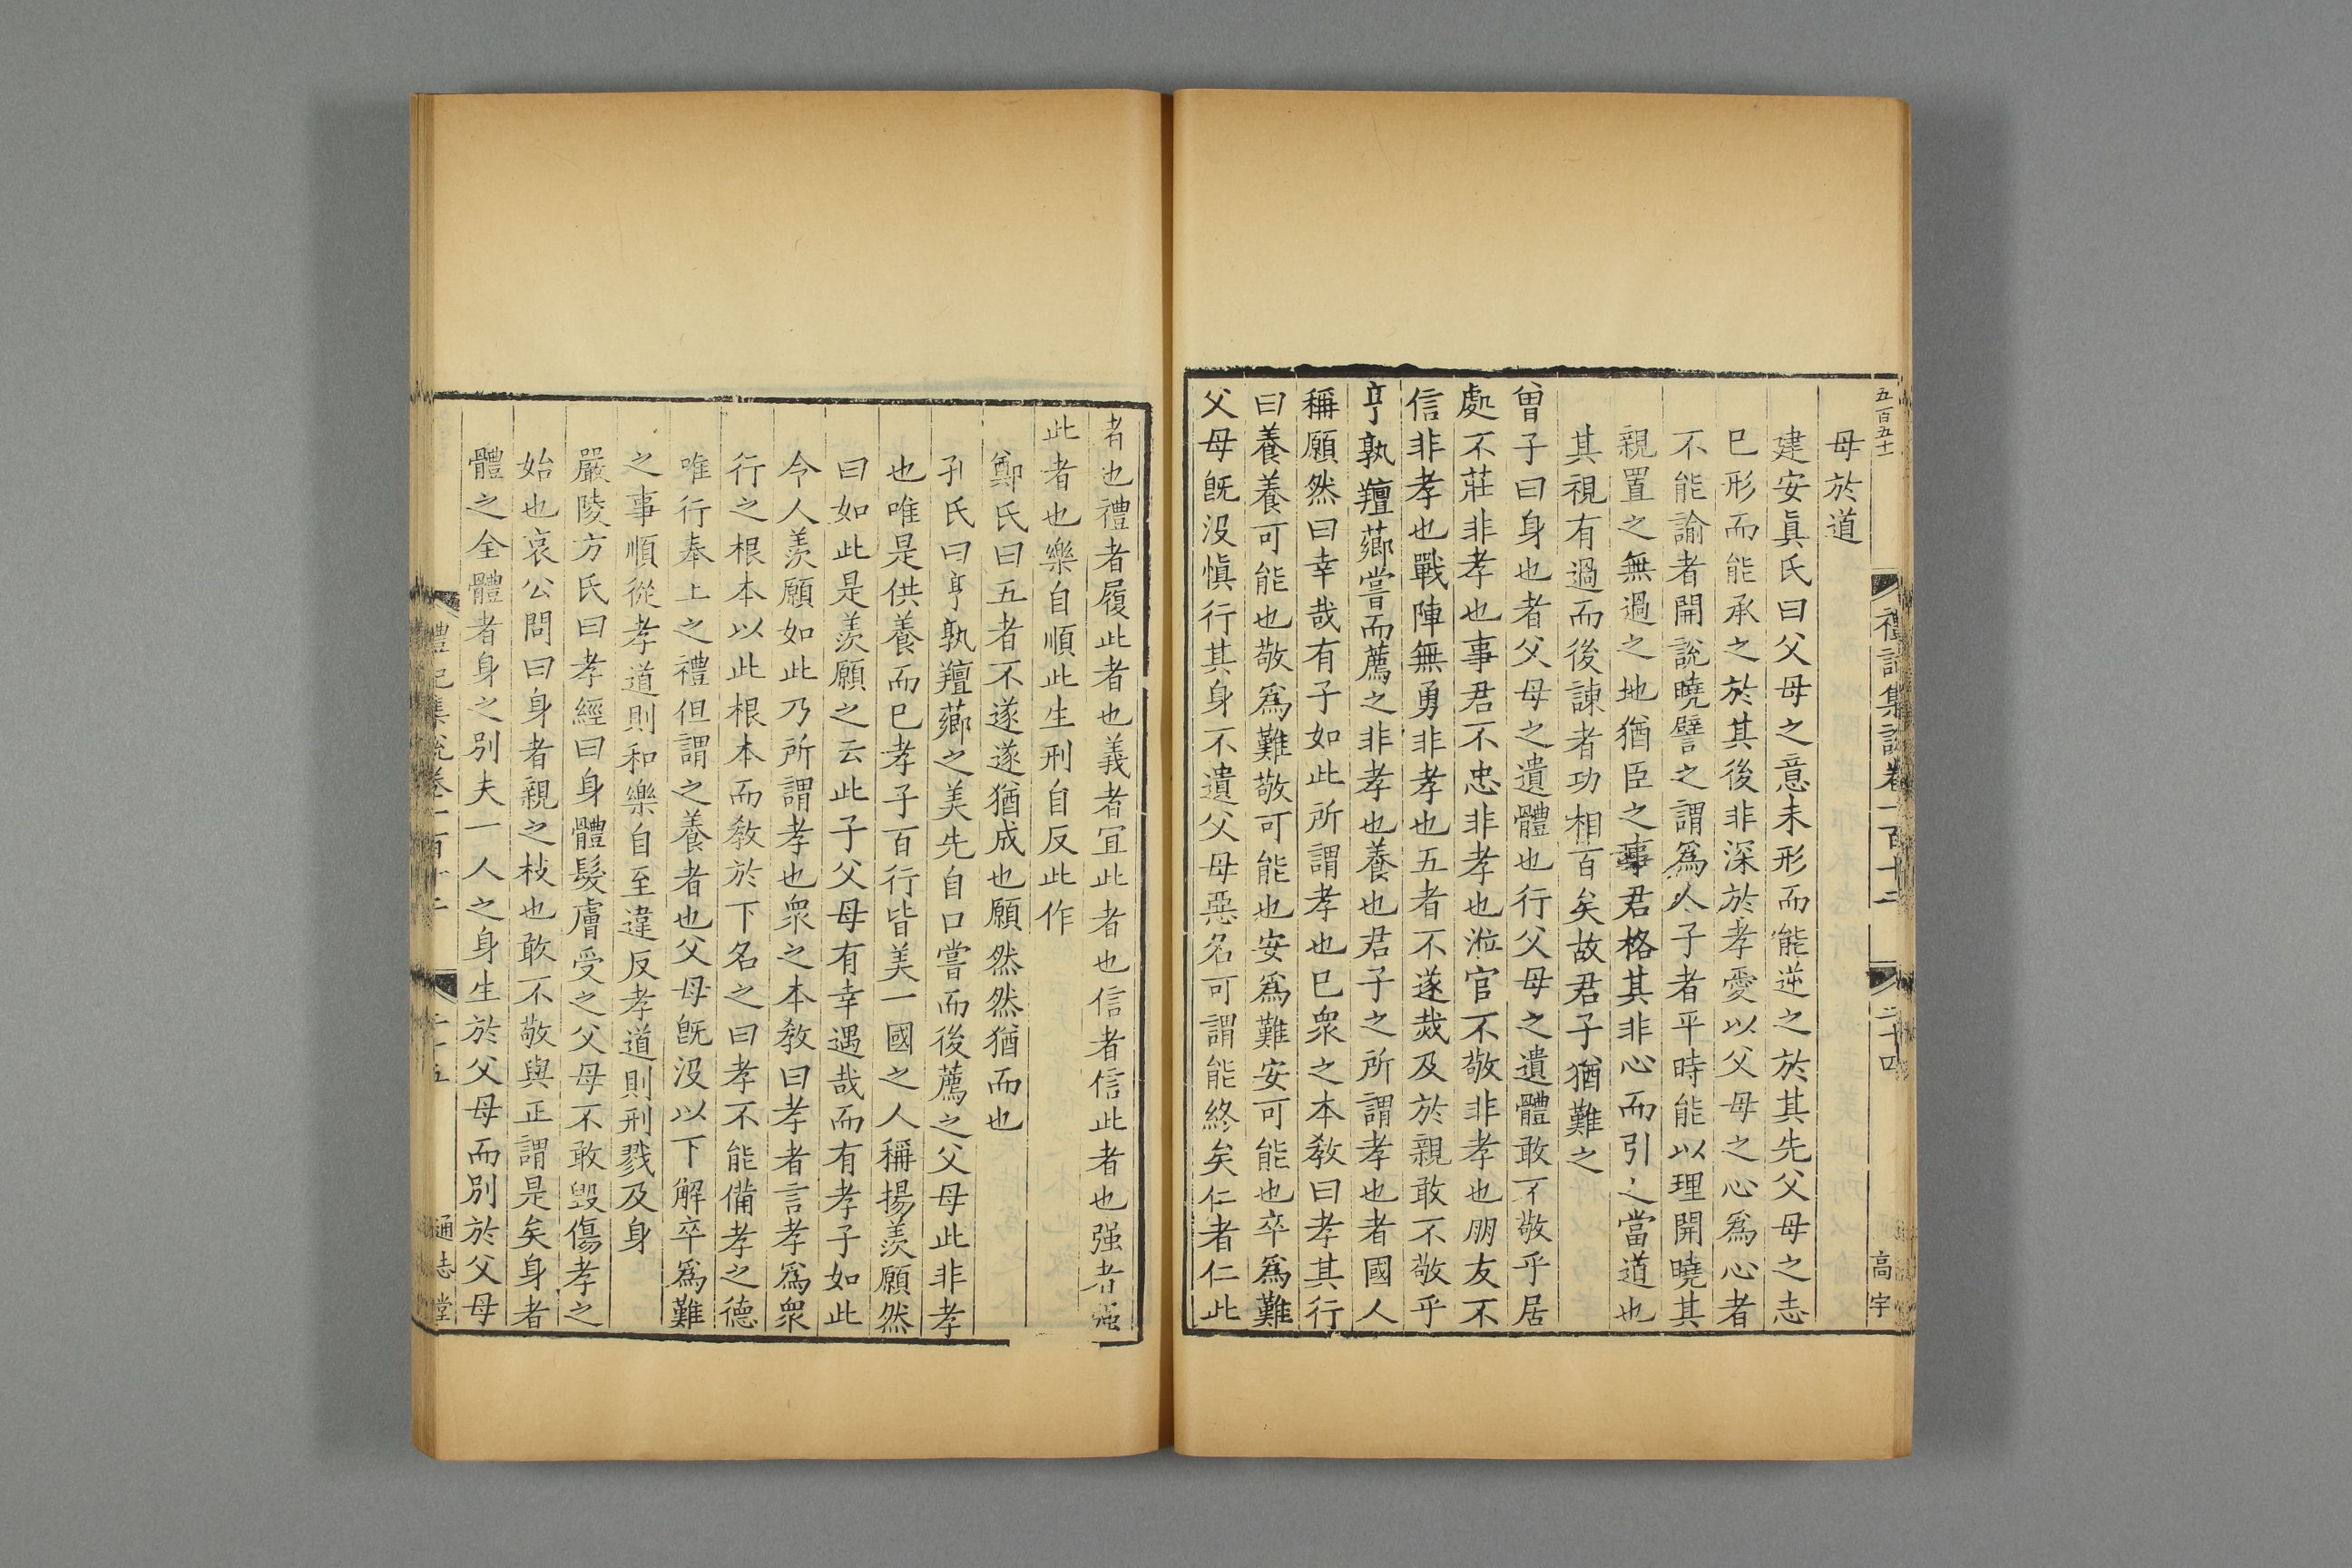 五百五十一
禮記集說卷一百十二
二十四
高宇
母於道
建安眞氏曰父母之意未形而能逆之於其先父母之志
已形而能承之於其後非深於孝愛以父母之心爲心者
不能諭者開說曉譬之謂爲人子者平時能以理開曉其
親置之無過之地猶臣之事君格其非心而引之當道也
其視有過而後諫者功相百矣故君子猶難之
曾子曰身也者父母之遺體也行父母之遺體敢不敬乎居
處不莊非孝也事君不忠非孝也涖官不敬非孝也朋友不
信非孝也戰陣無勇非孝也五者不遂烖及於親敢不敬乎
亨孰羶薌嘗而薦之非孝也養也君子之所謂孝也者國人
稱願然曰幸哉有子如此所謂孝也已衆之本敎曰孝其行
曰養養可能也敬爲難敬可能也安爲難安可能也卒爲難
父母旣沒愼行其身不遺父母惡名可謂能終矣仁者仁此
者也禮者履此者也義者宜此者也信者信此者也强者强
此者也樂自順此生刑自反此作
鄭氏曰五者不遂遂猶成也願然然猶而也
孔氏曰亨孰羶薌之美先自口嘗而後薦之父母此非孝
也唯是供養而已孝子百行皆美一國之人稱揚羨願然
曰如此是羨願之云此子父母有幸遇哉而有孝子如此
今人羨願如此乃所謂孝也衆之本敎曰孝者言孝爲衆
行之根本以此根本而敎於下名之曰孝不能備孝之德
唯行奉上之禮但謂之養者也父母旣沒以下解卒爲難
之事順從孝道則和樂自至違反孝道則刑戮及身
嚴陵方氏曰孝經曰身體髮膚受之父母不敢毀傷孝之
始也哀公問曰身者親之枝也敢不敬與正謂是矣身者
體之全體者身之別夫一人之身生於父母而別於父母
禮記集說卷一百十二
二十五
通志堂